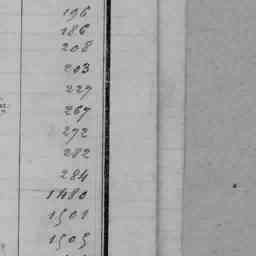 196
186
208
203
227
267
272
282
284
1480
1501
1505